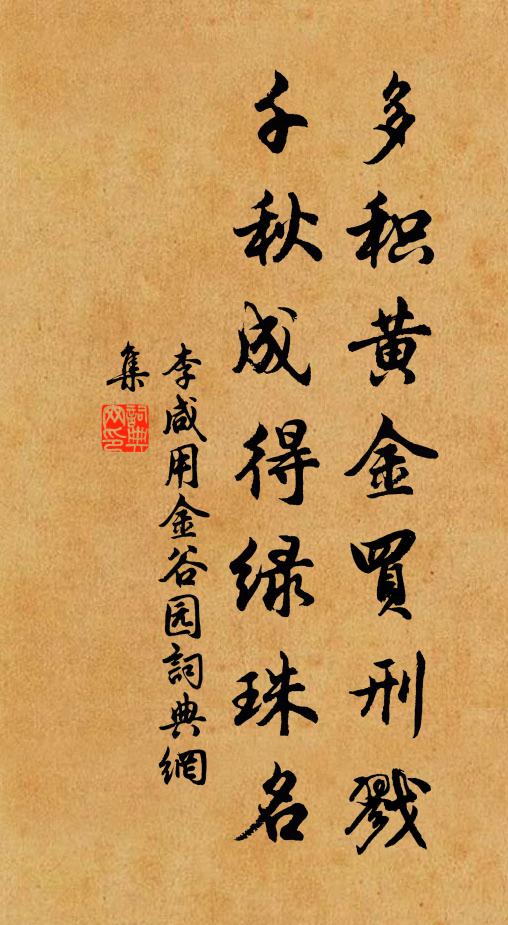 多积黄金買刑戮
千秋成得绿珠名
李咸用金谷园詞典網
集
詞典
网印